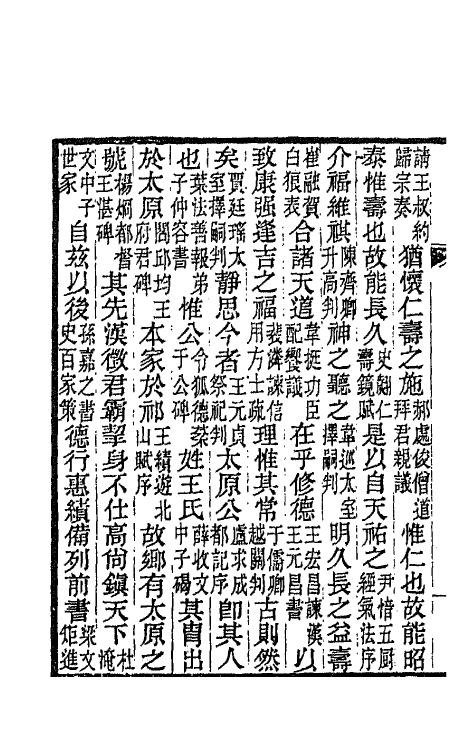 請王叔約歸宗奏猶懷仁壽之施郝處俊僧道拜君親議惟仁也故能昭
泰惟壽也故能長久史翽仁壽鏡賦是以自天祐之尹愔五厨經氣法序
介福維祺陳齊卿升高判神之聽之韋巡太室擇嗣判明久長之益壽
崔融賀白狼表合諸天道韋挺功臣配饗議在乎修德王宏昌諫漢王元昌書以
致康强逢吉之福裴潾諫信用方士疏理惟其常于儒卿越關判古則然
矣賈廷瑤太室擇嗣判靜思今者王元貞祭祀判太原公盧求成都記序卽其人
也葉法善報弟子仲容書惟公令狐德棻于公碑姓王氏薛收文中子碣其胄出
於太原閻邱均王府君碑本家於祁王績遊北山賦序故鄉有太原之
號楊炯都督王湛碑其先漢徵君霸挈身不仕高尚鎮天下杜淹
文中子世家自茲以後孫嘉之書史百家策德行惠績備列前書梁文矩進